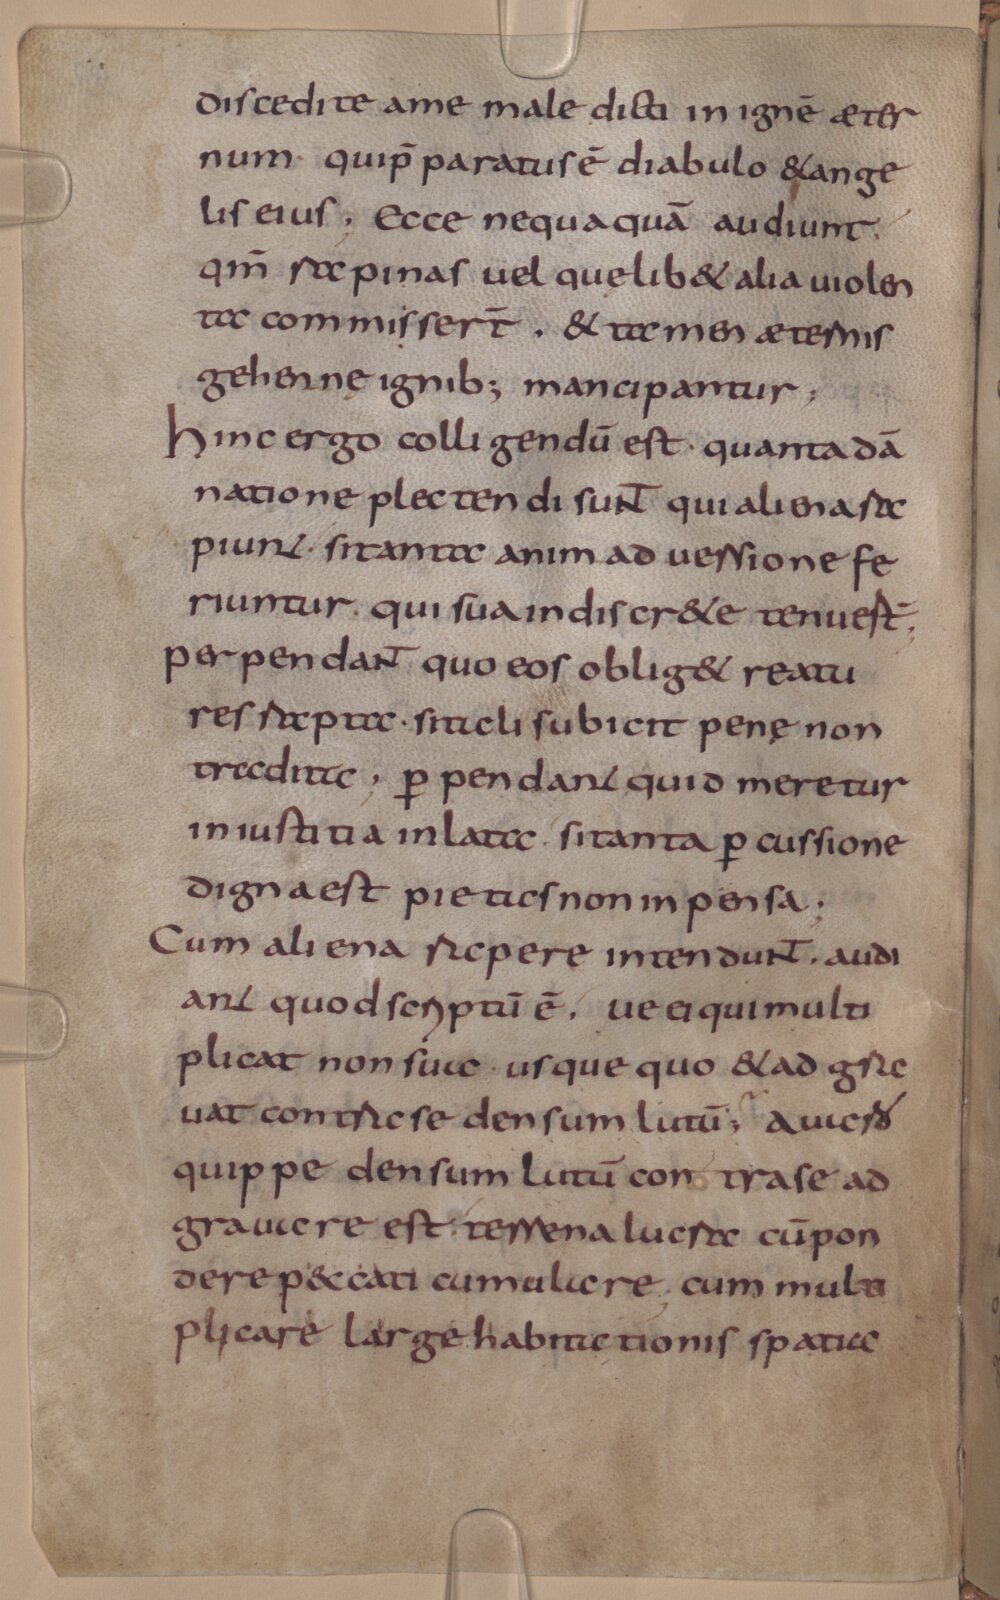 discedite ame male dicti in ignē æter
num· quip̄ paratus ē diabulo &ange
lis eius; Ecce nequaquā audiunt·
qm̄ rapinas uel quęlib& alia uiolen
ta commisserт̄· & tamen æternis
gehennę ignib; mancipantur;
Hinc ergo colligendū est· quanta dā
natione plectendi sunt qui aliena ra
piunt· si tanta animaduersione fe
riuntur· qui sua indiscr&e tenuer̄t;
perpendant quo eos oblig& reatu
res rapta· si talis subicit penę non
tradita; ꝑpendant quid meretur
iniustitia inlata· si tanta ꝑcussione
digna est pietas non inpensa;
Cum aliena rapere intendunt· audi
ant quod scriptū ē· ue ei qui multi
plicat non sua· usque quo & adgra
uat contra se densum lutū; auaro
quippe densum lutū contra se ad
grauare est· terrena lucra cū pon
dere peccati cumulare· cum multi
plicare large habitationis spatia